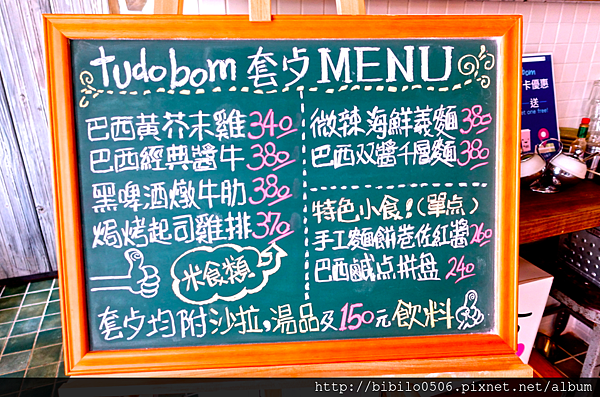 tudo bom 套歺 MENU
巴西黃芥末雞 340
巴西經典醬牛 380
黑啤酒燉牛肋 380
焗烤起司雞排 370
米食類
微辣海鮮義麵 380
巴西双醬千層麵 380
特色小食!(單点)
手工麵餅卷佐紅醬 260
巴西鹹点拼盘 240
套歺均附沙拉,湯品及150元飲料
卡優惠
送
http://bibilo0506.pixnet.net/album